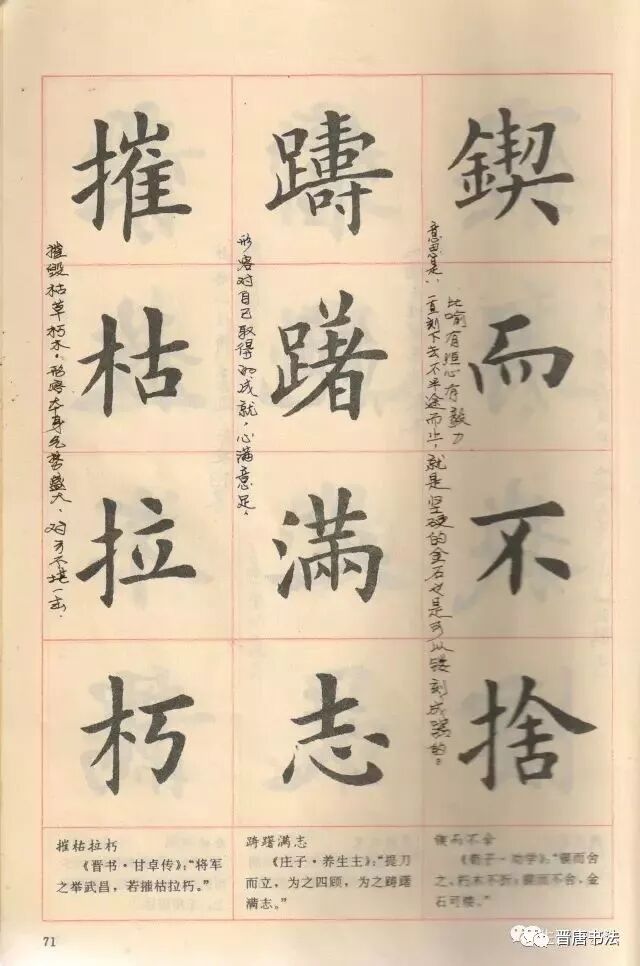 鍥而不捨
意思是：一直刻下去不半途而止，就是坚硬的金石也是可以镂刻成器的。
比喻有恒心有毅力
躊躇滿志
形容对自己取得的成就，心满意足。
摧枯拉朽
摧毁枯草朽木。形容本身气势盛大，对方不堪一击.
摧枯拉朽
《晋书·甘卓传》：“将军
之举武昌，若摧枯拉朽。”
踌躇满志
《庄子·养生主》：“提刀
而立，为之四顾，为之踌躇
满志。”
锲而不舍
《荀子·劝学》：“锲而舍
之，朽木不折；锲而不舍，金
石可镂。”
71
晋唐书法